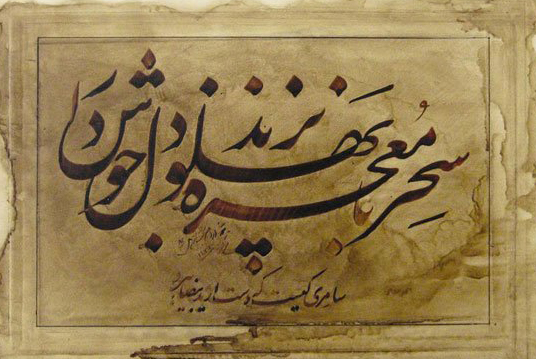 سِحر با معجزه پهلو نزند دل خوش دار
سامری کیست که دست از ید بیضا ببرد